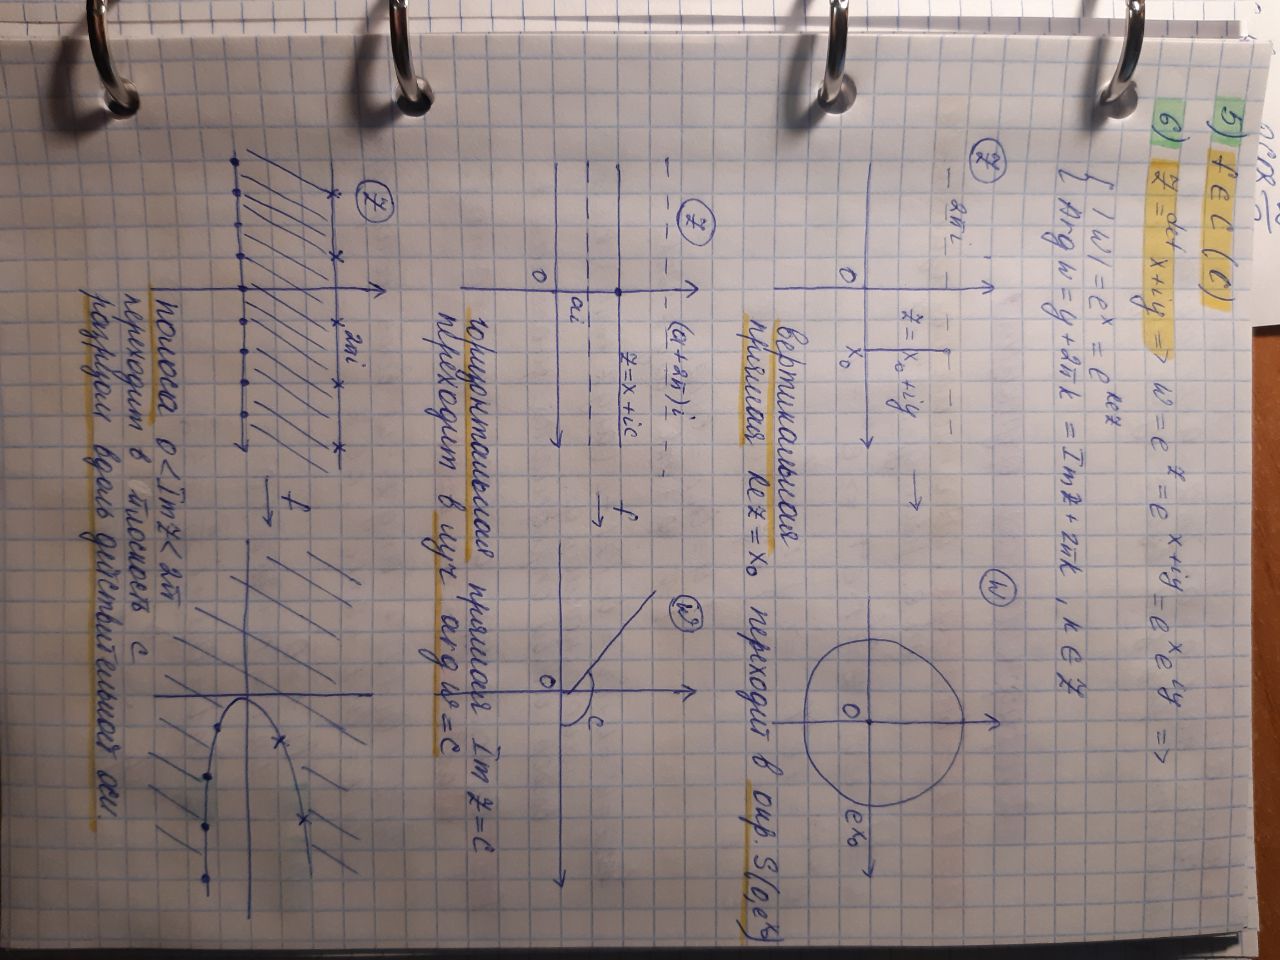 5) f ∈ C(ℂ)
6) Z = x+iy => w = e^z = e^{x+iy} = e^x e^{iy} =>
{ |w| = e^x = e^{Re z}
{ Arg w = y+2πk = Im z + 2πk, k ∈ Z
Z
W
2πi
z = x₀+iy
→
0
x₀
0
e^{x₀}
вертикальная
прямая Re z = x₀ переходит в окр. S(0, e^{x₀})
Z
(a+2π)i
f
→
W
z = x+ic
ai
0
c
0
горизонтальная прямая Im z = c
переходит в луч arg w = c
Z
2πi
f
→
полоса 0 < Im z < 2π
переходит в плоскость C
разрезом вдоль действительной оси.